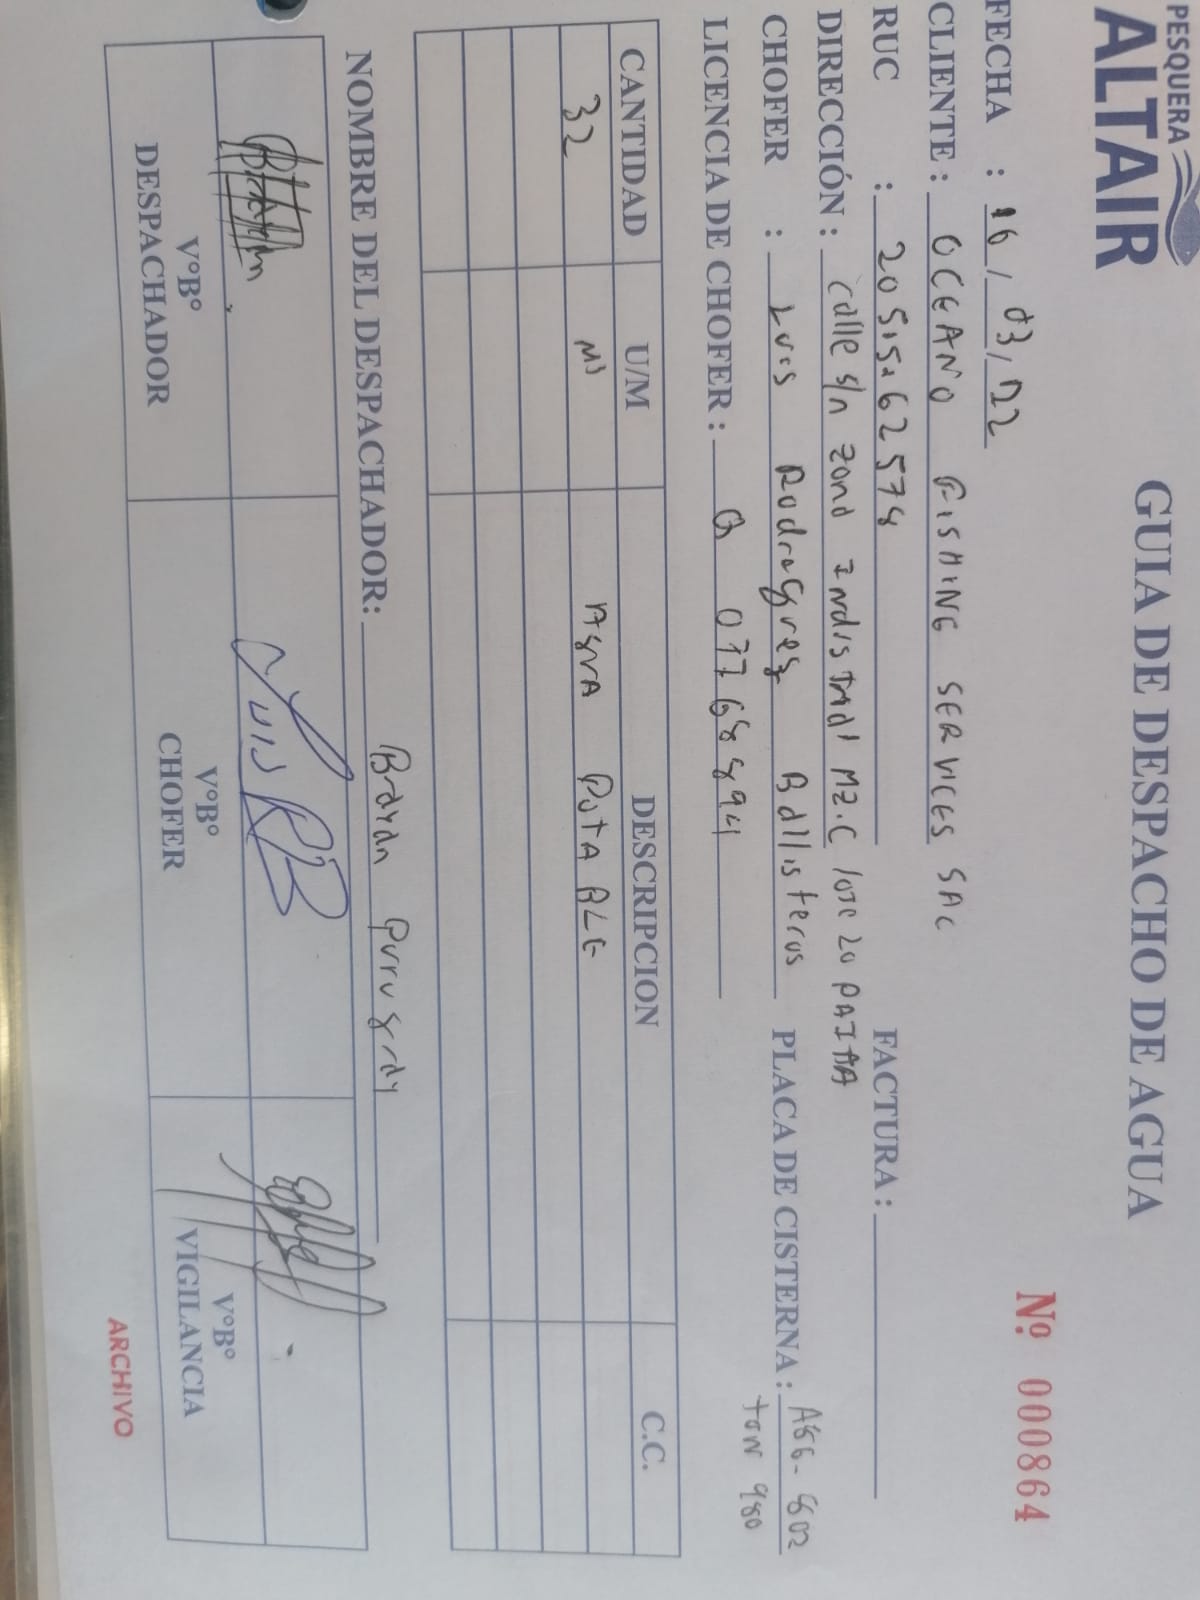 PESQUERA
ALTAIR
GUIA DE DESPACHO DE AGUA
Nº 000864
FECHA : 16 / 03 / 22
CLIENTE : OCEANO FISHING SERVICES SAC
RUC : FACTURA :
DIRECCIÓN : Calle s/n zona Indistrial MZ.C lote 20 PAITA
CHOFER : Luis Rodriguez Ballisteros PLACA DE CISTERNA : A86-802
LICENCIA DE CHOFER : Q 07768894 tow 980
CANTIDAD U/M DESCRIPCION C.C.
32 M3 AguA PotABLE
NOMBRE DEL DESPACHADOR: Brayan Puruguay
Luis RB
VºBº VºBº VºBº
DESPACHADOR CHOFER VIGILANCIA
ARCHIVO